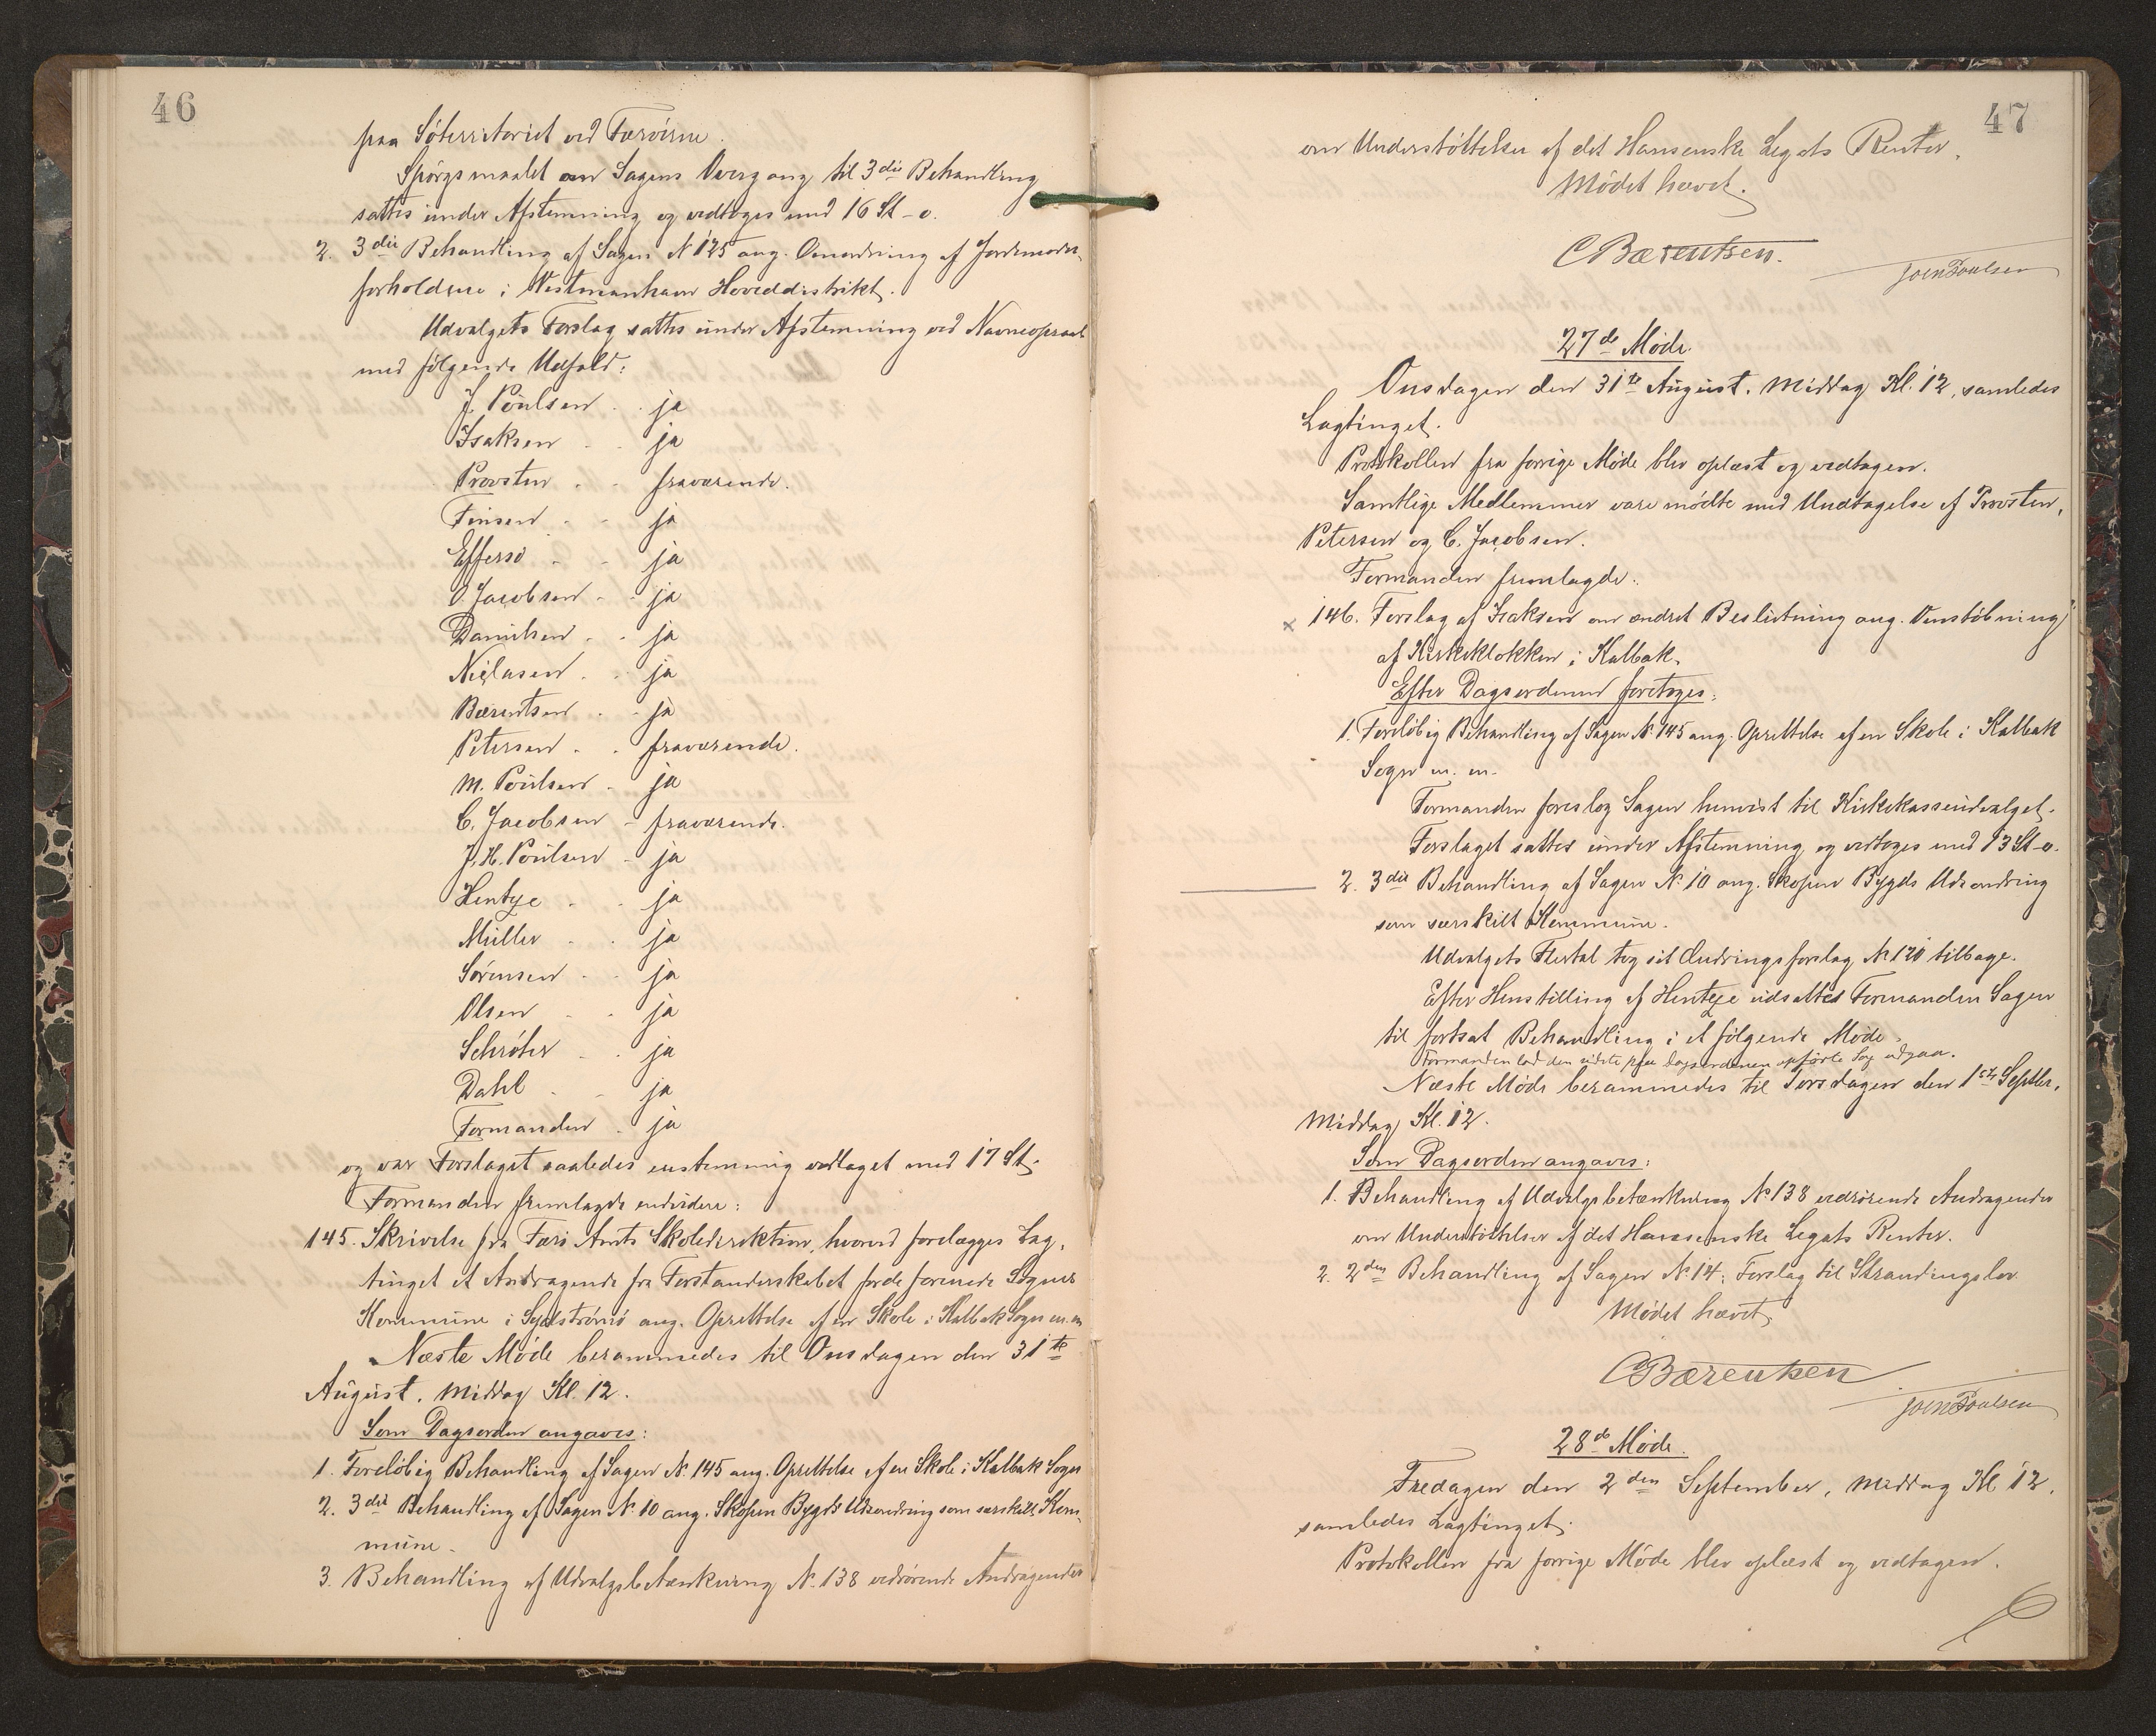 46
paa Söterritoriet ved Færöerne.
Spörgsmaalet om Sagens Overgang til 3die Behandling
sattes under Afstemning og vedtoges med 16 St - o.
2. 3die Behandling af Sagen N 125 ang. Omordning af Jordemoder-
forholdene i Vestmanhavn Hoveddistrikt.
Udvalgets Forslag sattes under Afstemning ved Navneopraab
med fölgende Udfald:
J. Poulsen . . ja
Isaksen - - ja
Provsten . - fraværende.
Finsen . - ja
Effersö - - ja
O. Jacobsen - - ja
Danielsen . - ja
Niclasen . . ja
Bærentsen - - ja
Petersen . . fraværende.
M. Poulsen - ja
C. Jacobsen - fraværende.
J. H. Poulsen - ja
Hentze - - ja
Müller - . ja
Sörensen - - ja
Olsen - - ja
Schröter - . ja
Dahl - - ja
Formanden . ja
og var Forslaget saaledes enstemmig vedtaget med 17 St.
Formanden fremlagde endvidere:
145. Skrivelse fra Færö Amts Skoledirektion, hvorved forelægges Lag-
tinget et Andragende fra Forstanderskabet for de forenede Sognes
Kommune i Sydströmö ang. Oprettelse af en Skole i Kalbak Sogn m. m
Næste Möde berammedes til Onsdagen den 31te
August, Middag Kl. 12.
Som Dagsorden angaves:
1. Forelöbig Behandling af Sagen N. 145 ang. Oprettelse af en Skole i Kalbak Sogn
2. 3die Behandling af Sagen N. 10 ang. Skopen Bygds Udsondring som særskilt Kom-
mune.
3. Behandling af Udvalgsbetænkning N. 138 vedrörende Andragender
47
om Understöttelser af det Hansenske Legats Renter.
Mödet hævet.
C Bærentsen.
Joen Poulsen
27de Möde.
Onsdagen den 31te August, Middag Kl. 12, samledes
Lagtinget.
Protokollen fra forrige Möde blev oplæst og vedtagen.
Samtlige Medlemmer vare mödte med Undtagelse af Provsten,
Petersen og C. Jacobsen.
Formanden fremlagde:
x 146. Forslag af Isaksen om ændret Beslutning ang. Omstöbning
af Kirkeklokken i Kalbak.
Efter Dagsordenen foretoges:
1. Forelöbig Behandling af Sagen N. 145 ang. Oprettelse af en Skole i Kalbak
Sogn m. m.
Formanden foreslog Sagen henvist til Kirkekasseudvalget.
Forslaget sattes under Afstemning og vedtoges med 13 St - o.
2. 3die Behandling af Sagen N. 10 ang. Skopen Bygds Udsondring
som særskilt Kommune.
Udvalgets Flertal tog sit Ændringsforslag N. 120 tilbage.
Efter Henstilling af Hentze udsattes Formanden Sagen
til fortsat Behandling i et fölgende Möde.
Formanden lod den sidste paa Dagsordenen opförte Sag udgaa.
Næste Möde berammedes til Torsdagen den 1ste Septbr.,
Middag Kl. 12.
Som Dagsorden angaves:
1. Behandling af Udvalgsbetænkning N. 138 vedrörende Andragender
om Understöttelser af det Hansenske Legats Renter.
2. 2den Behandling af Sagen N. 14: Forslag til Strandingslov
Mödet hævet.
C Bærentsen
Joen Poulsen
28de Möde.
Fredagen den 2den September, Middag Kl 12,
samledes Lagtinget.
Protokollen fra forrige Möde blev oplæst og vedtagen.